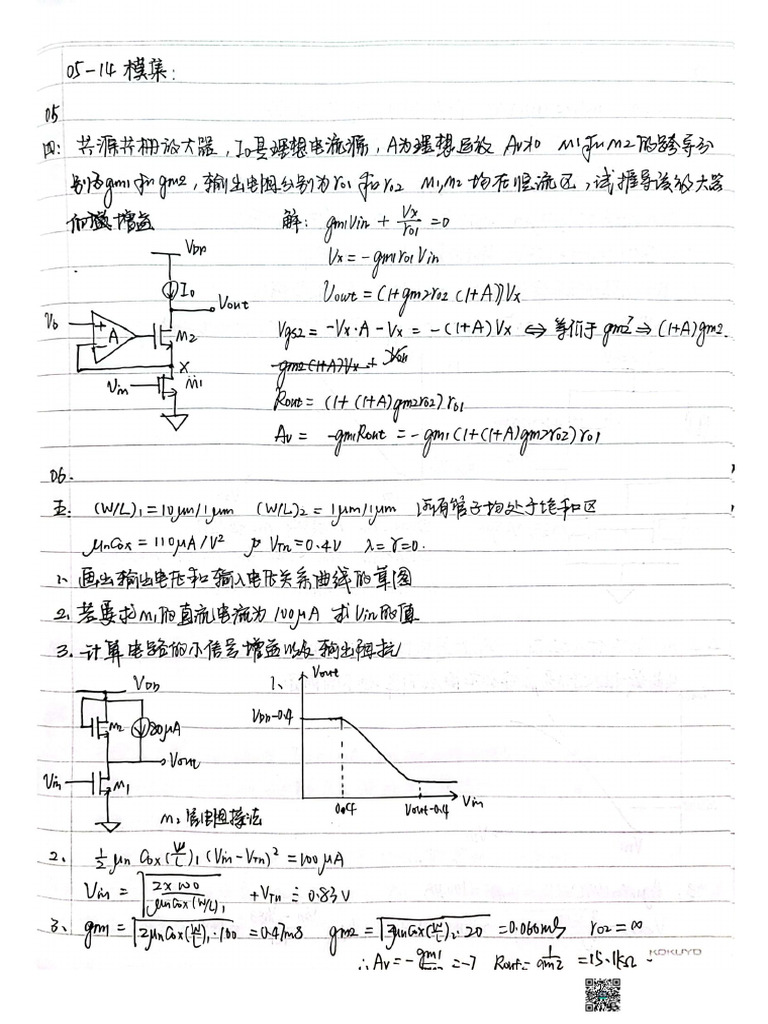 05-14 模集:
05
四: 共源共栅放大器, I₀是理想电流源, A为理想运放 Av≠0 M1和M2的跨导分
别为gm1和gm2, 输出电阻分别为ro1和ro2 M1,M2均在恒流区, 试推导该放大器
的增益
解: gm1Vin + Vx/ro1 = 0
Vx = -gm1ro1Vin
Vout = (1+gm2ro2(1+A))Vx
Vgs2 = -Vx·A - Vx = -(1+A)Vx ⇔ 等价于gm2' ⇒ (1+A)gm2.
Rout = (1+(1+A)gm2ro2)ro1
Av = -gm1Rout = -gm1(1+(1+A)gm2ro2)ro1
VDD
I₀
Vout
Vb
+
A
-
M2
X
Vin
M1
06.
五. (W/L)₁=10μm/1μm (W/L)₂=1μm/1μm 所有管子均处于饱和区
μnCox=110μA/V² VTn=0.4V λ=γ=0.
1. 画出输出电压和输入电压关系曲线的草图
2. 若要求M1的直流电流为100μA 求Vin的值
3. 计算电路的小信号增益以及输出阻抗
VDD
M2
80μA
Vout
Vin
M1
M2为电阻接法
1、
Vout
VDD-0.4
0.4
Vout-0.4
Vin
2、 ½μnCox(W/L)₁(Vin-VTn)² = 100μA
Vin = √(2×100/μnCox(W/L)₁) + VTn = 0.83V
3、 gm1 = √(2μnCox(W/L)₁·100) = 0.47mS gm2 = √(2μnCox(W/L)₂·20) = 0.066mS ro2=∞
∴ Av = -gm1/gm2 = -7 Rout = 1/gm2 = 15.1kΩ
KOKUYO